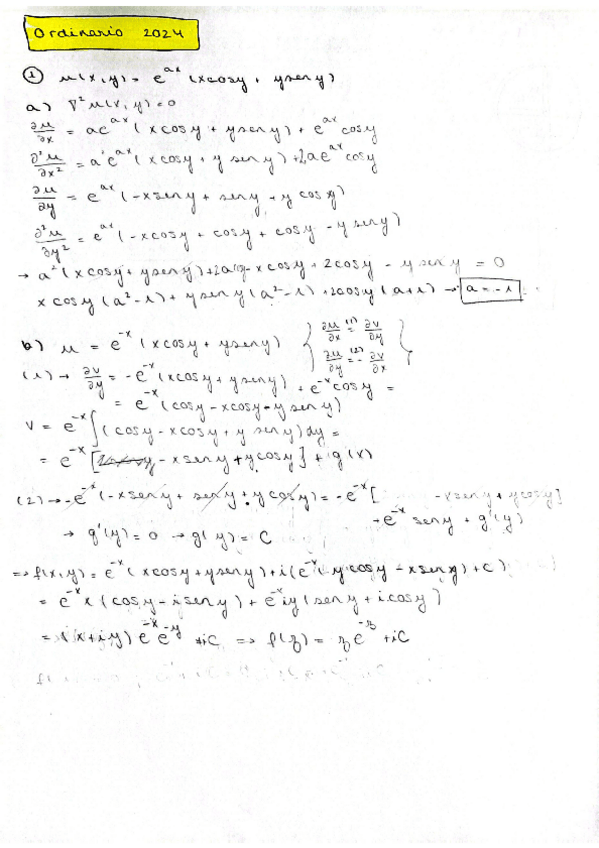 Ordinario 2024
① u(x,y) = e^{ax} (xcosy + yseny)
a) ∇²u(x,y) = 0
∂u/∂x = ae^{ax} (xcosy + yseny) + e^{ax} cosy
∂²u/∂x² = a²e^{ax} (xcosy + y seny) + 2ae^{ax} cosy
∂u/∂y = e^{ax} (-xseny + seny + y cosy)
∂²u/∂y² = e^{ax} (-xcosy + cosy + cosy - y seny)
→ a² (xcosy + yseny) + 2a cosy - xcosy + 2cosy - y seny = 0
x cosy (a² - 1) + yseny (a² - 1) + 2cosy (a+1) → a = -1
b) u = e^{-x} (xcosy + yseny) { ∂u/∂x (1)= ∂v/∂y
∂u/∂y (2)= - ∂v/∂x }
(1) → ∂v/∂y = -e^{-x} (xcosy + yseny) + e^{-x} cosy =
= e^{-x} (cosy - xcosy - y seny)
V = e^{-x} ∫ (cosy - xcosy + y seny) dy =
= e^{-x} [ - xseny + ycosy] + g(x)
(2) → -e^{-x} (-xseny + seny + y cosy) = -e^{-x} [ - xseny + ycosy]
- e^{-x} seny + g'(y)
→ g'(y) = 0 → g(y) = C
⇒ f(x,y) = e^{-x} (xcosy + yseny) + i(e^{-x} (ycosy - xseny) + c)
= e^{-x} x (cosy - iseny) + e^{-x} iy (seny + icosy)
= (x+iy) e^{-x} e^{-y} + iC ⇒ f(z) = z e^{-z} + iC